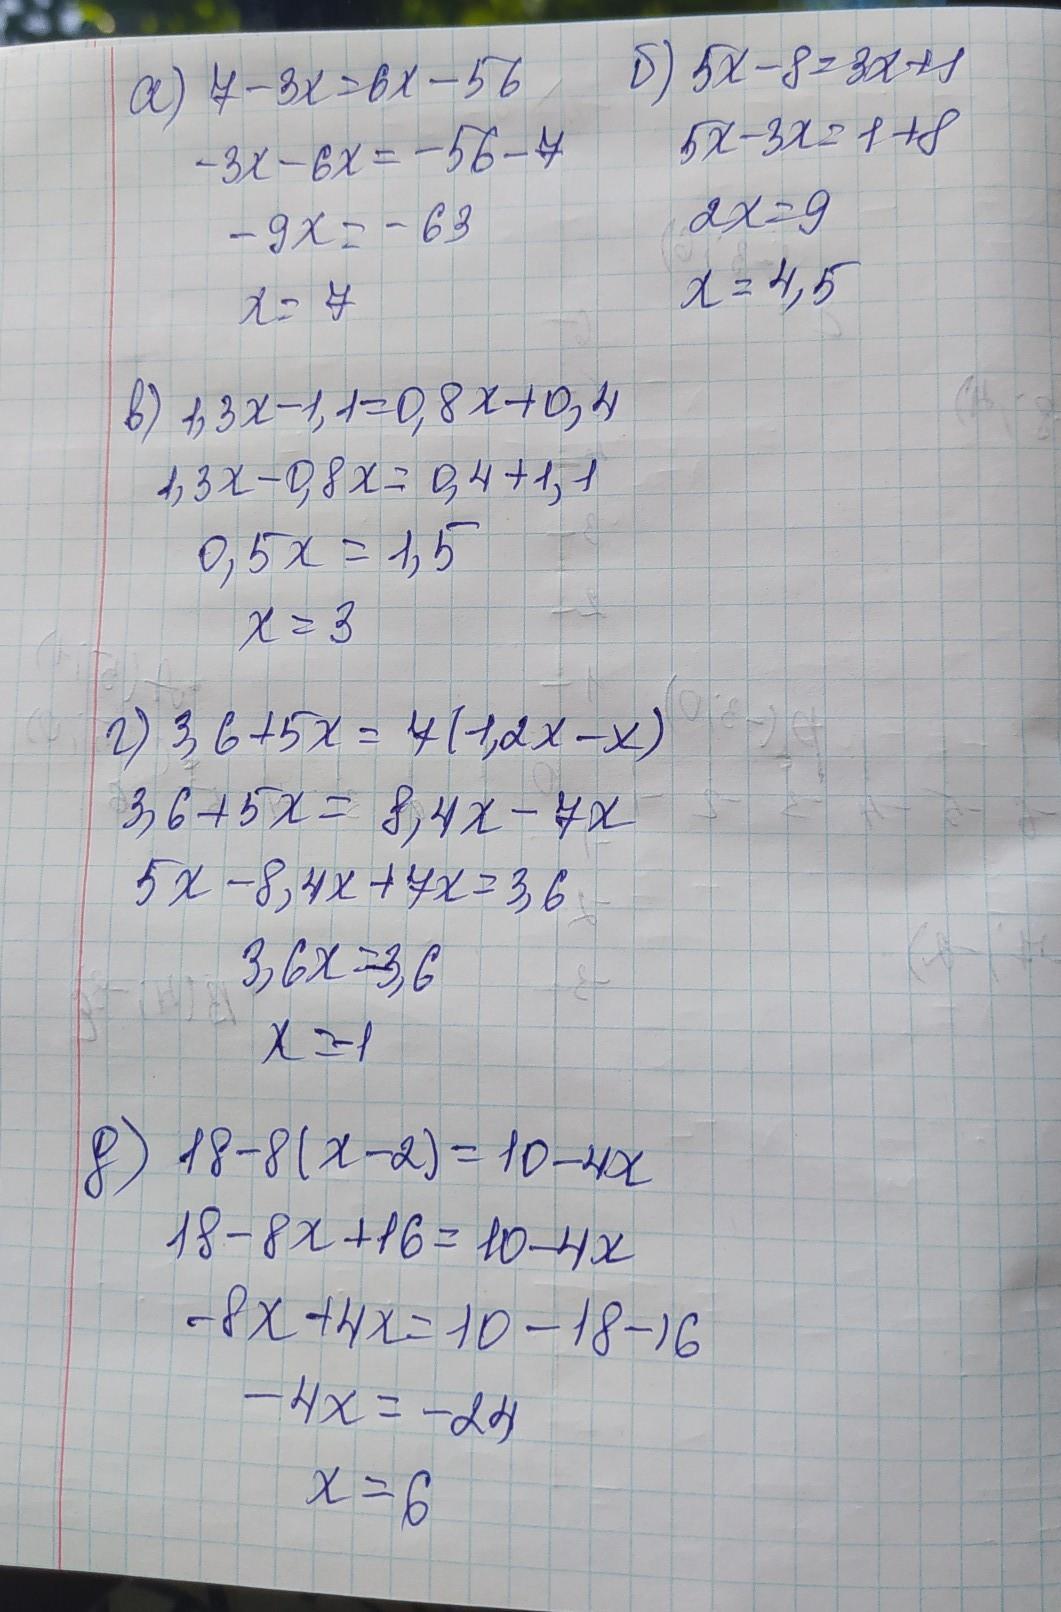 а) 7-3x=6x-56
-3x-6x=-56-7
-9x=-63
x=7
б) 5x-8=3x+1
5x-3x=1+8
2x=9
x=4,5
в) 1,3x-1,1=0,8x+0,4
1,3x-0,8x=0,4+1,1
0,5x=1,5
x=3
г) 3,6+5x=7(1,2x-x)
3,6+5x=8,4x-7x
5x-8,4x+7x=3,6
3,6x=-3,6
x=-1
д) 18-8(x-2)=10-4x
18-8x+16=10-4x
-8x+4x=10-18-16
-4x=-24
x=6